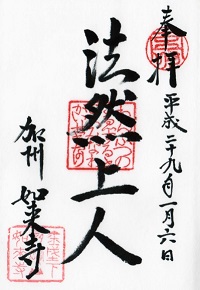 奉拝
平成二十九年一月六日
法然上人
加州 如来寺